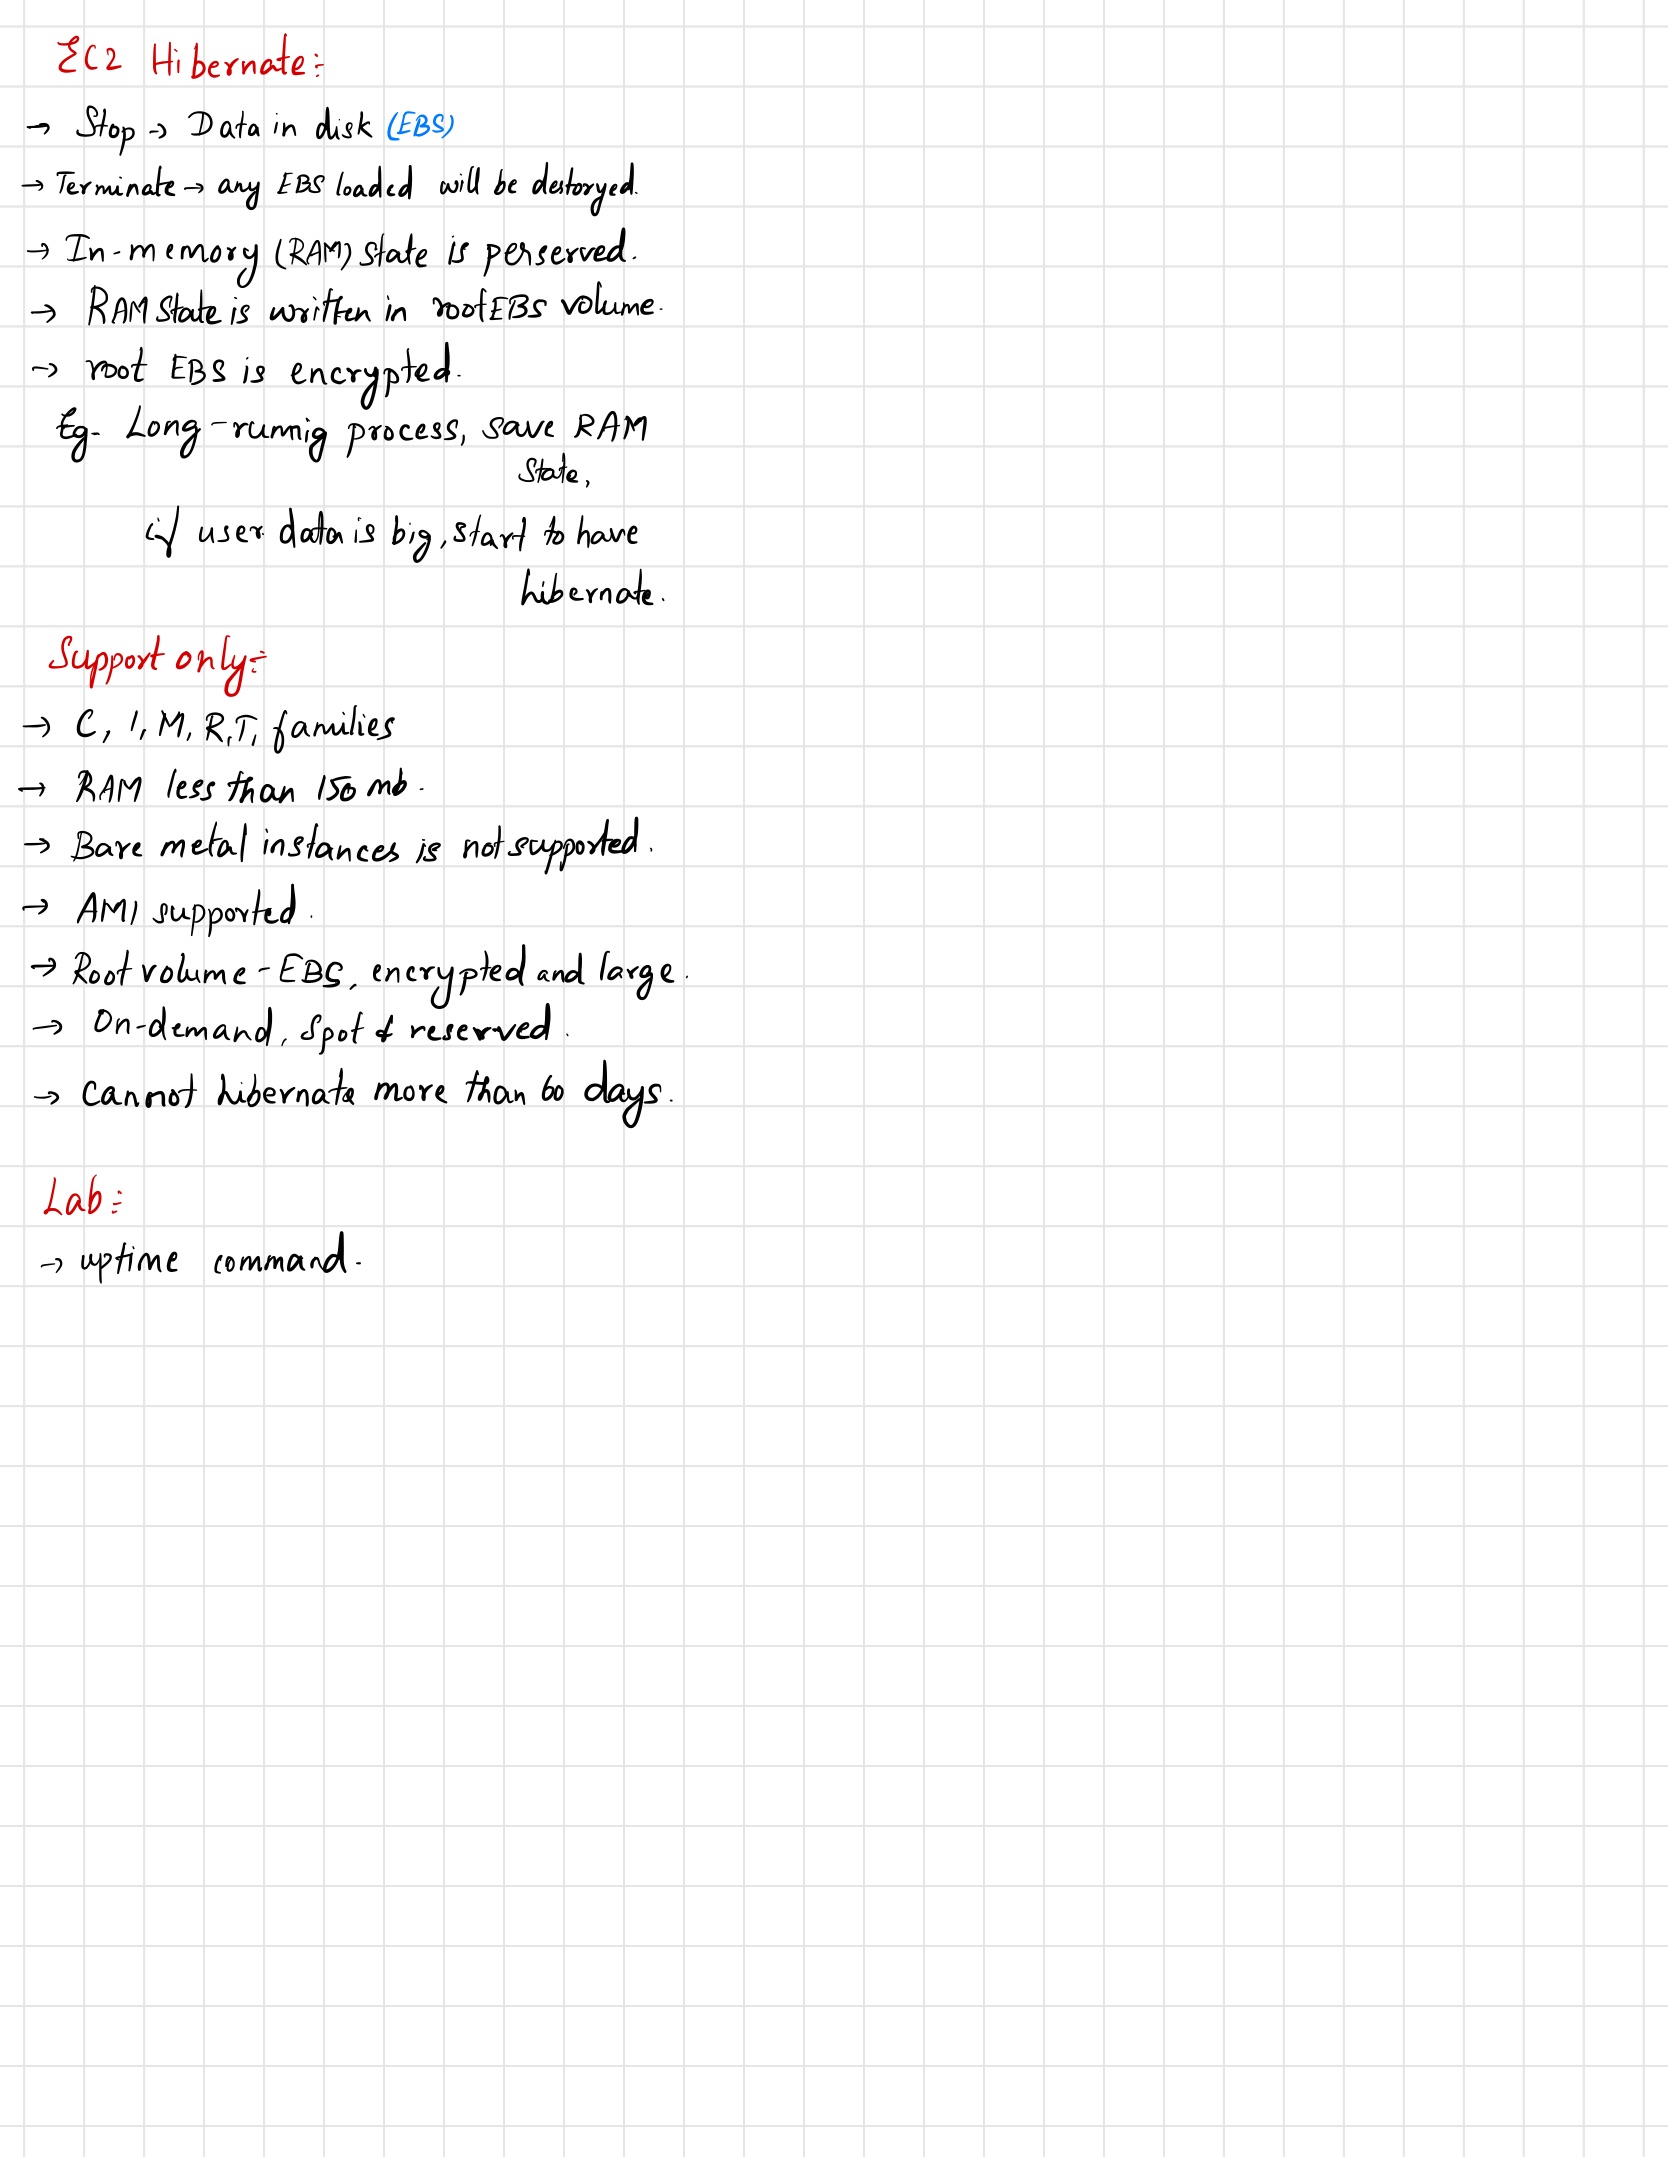 EC2 Hibernate:-
→ Stop → Data in disk (EBS)
→ Terminate → any EBS loaded will be destoryed.
→ In-memory (RAM) state is perserved.
→ RAM State is written in root EBS volume.
→ root EBS is encrypted.
Eg- Long-runnig process, save RAM
State,
if user data is big, start to have
hibernate.
Support only:-
→ C, I, M, R, T, families
→ RAM less than 150 mb.
→ Bare metal instances is not supported.
→ AMI supported.
→ Root volume - EBS, encrypted and large.
→ On-demand, Spot & reserved.
→ cannot hibernate more than 60 days.
Lab:-
→ uptime command.